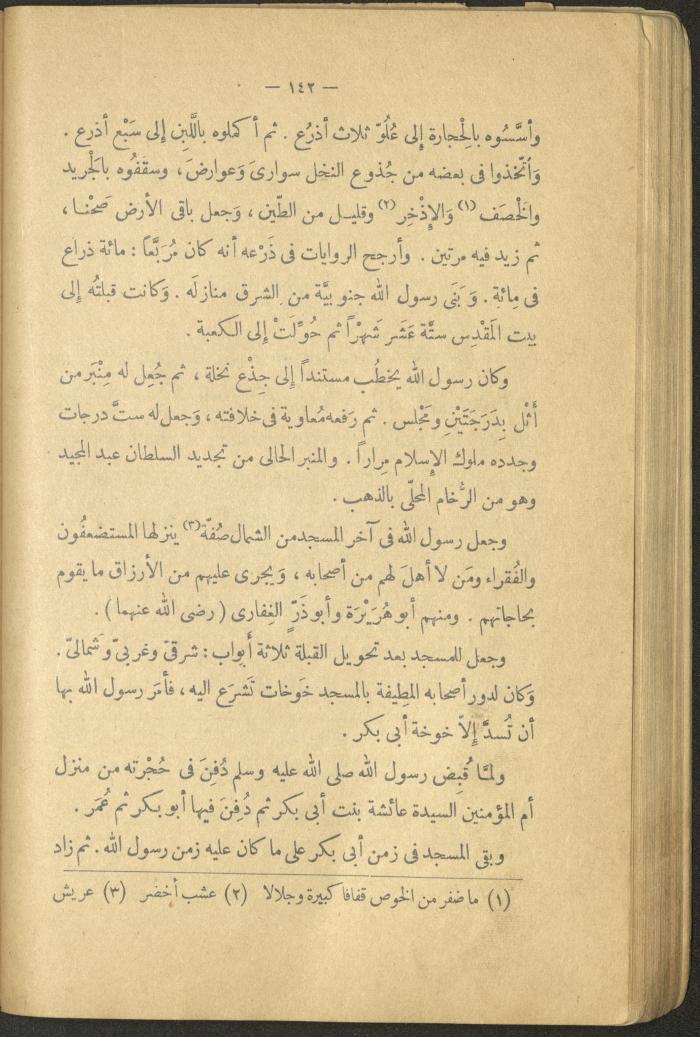 — ١٤٢ —
وأسَّسُوه بالحِجارة إلى عُلُوّ ثلاث أذرُع . ثم أكملوه باللَّبِن إلى سَبْع أذرع .
وَاتّخذوا فى بعضه من جُذوع النخل سوارىَ وَعوارضَ، وسقَفُوه بالجريد
والخَصَف (١) وَالإِذْخِر (٢) وقليل من الطّين ، وَجعل باقى الأرض صَحْنا ،
ثم زيد فيه مرتين . وأرجح الروايات فى ذَرْعه أنه كان مُرَبَّعاً : مائة ذراع
فى مِائة . وَبَنَى رسول الله جنوبيَّة من الشرق منازلَه . وَكانت قبلتُه إلى
بيت المَقْدِس ستَّة عَشَر شَهْراً ثم حُوِّلَتْ إلى الكعبة .
وكان رسول الله يخطُب مستنداً إلى جِذْع نخلة ، ثم جُعِل له مِنْبَر من
أَثْل بِدَرَجَتَيْنِ ومَجْلس . ثم رَفعه مُعاوية فى خلافته ، وَجعل له ستَّ درجات
وجدده ملوك الإسلام مِراراً . والمنبر الحالى من تجديد السلطان عبد المجيد
وهو من الرُّخام المحلّى بالذهب .
وجعل رسول الله فى آخر المسجد من الشمال صُفّة (٣) ينزلها المستضعفُون
والفُقراء ومَن لا أهلَ لهم من أصحابه ، وَيجرى عليهم من الأرزاق ما يقوم
بحاجاتهم . ومنهم أبو هُرَيْرَة وأبو ذَرّ الغِفارى ( رضى الله عنهما ) .
وجعل للمسجد بعد تحويل القبلة ثلاثة أبواب : شرقىّ وغربىّ وَشمالىّ .
وَكان لدور أصحابه المطِيفة بالمسجد خَوخات تَشرَع اليه ، فأمَر رسول الله بها
أن تُسدَّ إلاّ خوخة أبى بكر .
ولمَّا قُبِض رسول الله صلى الله عليه وسلم دُفِنَ فى حُجْرته من منزل
أم المؤمنين السيدة عائشة بنت أبى بكر ثم دُفِنَ فيها أبو بكر ثم عُمَر .
وبقى المسجد فى زمن أبى بكر على ما كان عليه زمن رسول الله . ثم زاد
(١) ما ضفر من الخوص قفافا كبيرة وجلالا (٢) عشب أخضر (٣) عريش